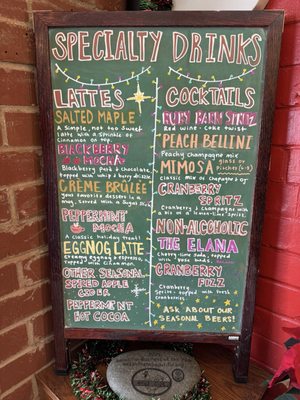 SPECIALTY DRINKS
LATTES
SALTED MAPLE
A simple, not too sweet
latte with a sprinkle of
cinnamon on top.
BLACKBERRY
MOCHA
Blackberry dark chocolate,
topped with whip & berry dust
CRÈME BRÛLÉE
your favorite dessert in a
mug. Served with a sugar
PEPPERMINT
MOCHA
A classic holiday treat!
EGGNOG LATTE
creamy eggnog & espresso,
topped with cinnamon.
OTHER SEASONAL
SPICED APPLE
CIDER
PEPPERMINT
HOT COCOA
COCKTAILS
RUBY BARN SPRITZ
Red wine - coke twist
PEACH BELLINI
Peachy champagne mix
MIMOSA glass or
pitcher!
classic mix of champagne & oj
CRANBERRY
SPRITZ
Cranberry & champagne with
a mix of a lemon-lime spritz.
NON-ALCOHOLIC
THE ELANA
Cherry lime soda, topped
with
CRANBERRY
FIZZ
Cranberry
Sprite - topped with fresh
cranberries
ASK ABOUT OUR
SEASONAL BEERS!